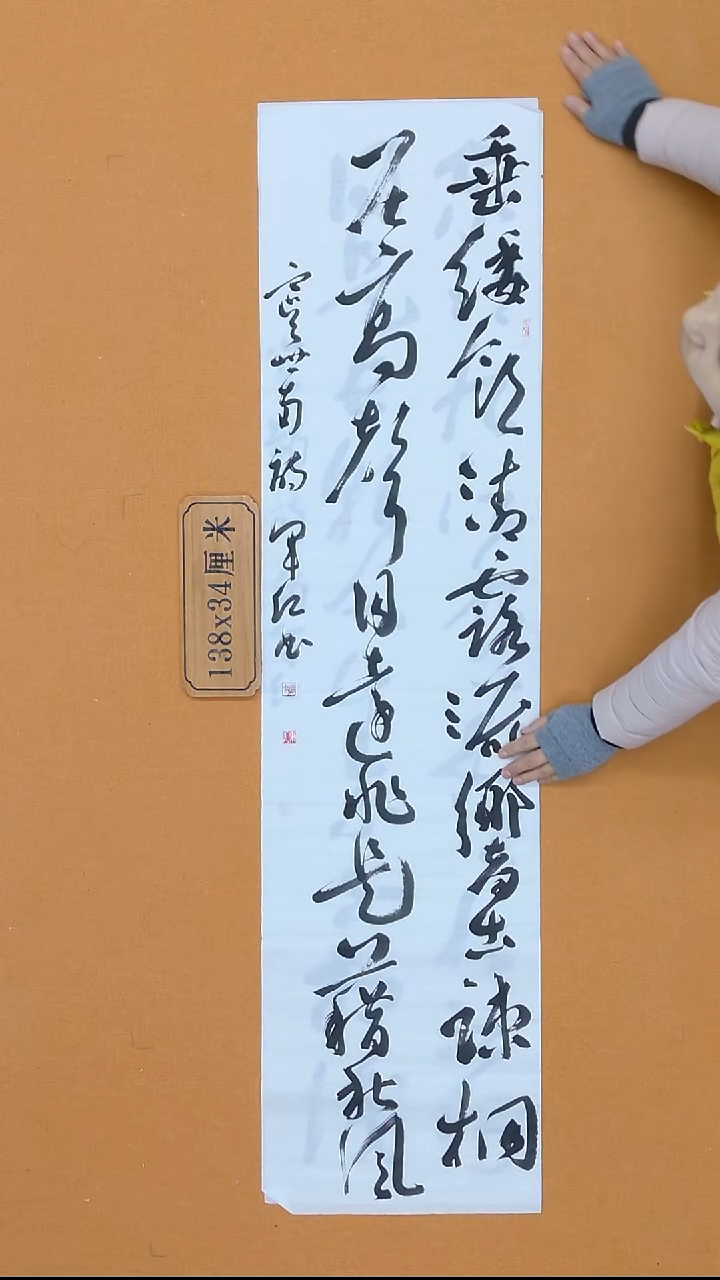 垂緌飲清露流響出疎桐
居高聲自遠非是藉秋風
虞世南詩
138x34厘米